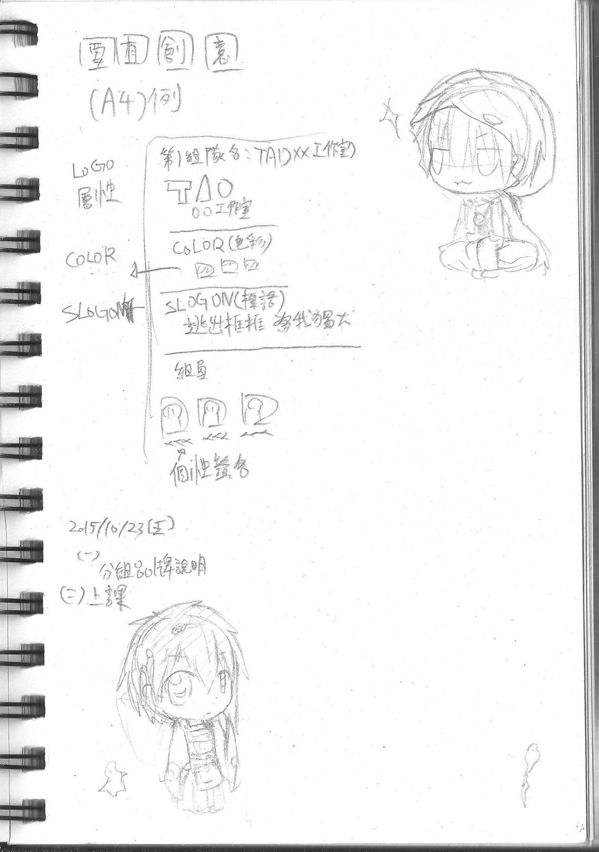 面直創意
(A4)例
LOGO
屬性
COLOR
SLOGON
第1組隊名:TAIDXX工作室
OO工作室
COLOR(色彩)
SLOGON(標語)
跳出框框 唯我獨大
組員
個性簽名
2015/10/23(五)
(一)
分組品牌說明
(二)上課